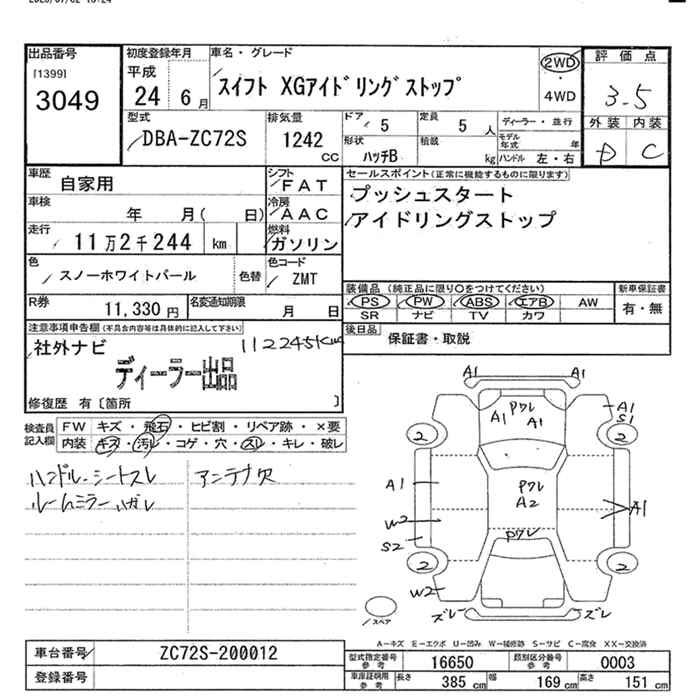 出品番号
[1399]
3049
初度登録年月
平成
24 6月
車名・グレード
スイフト XGアイドリングストップ
2WD
・
4WD
評価点
3.5
外装 内装
D C
型式
DBA-ZC72S
排気量
1242
cc
ドア 5
定員 5 人
ディーラー・並行
形状
ハッチB
積載
kg
モデル年式 年
ハンドル 左・右
車歴
自家用
シフト
FAT
車検
年 月( 日)
冷房
AAC
走行
11万2千244 km
燃料
ガソリン
色
スノーホワイトパール
色替
色コード
ZMT
R券
11,330 円
名変通知期限
月 日
セールスポイント(正常に機能するものに限ります)
プッシュスタート
アイドリングストップ
装備品 (純正品に限り○をつけてください)
PS PW ABS エアB AW
SR ナビ TV カワ
新車保証書
有・無
後日品
保証書・取説
注意事項申告欄(不具合内容等は具体的に記入して下さい)
社外ナビ
112245Km
ディーラー出品
修復歴 有〔箇所 〕
検査員
記入欄
FW キズ・飛石・ヒビ割・リペア跡・×要
内装 キズ・汚レ・コゲ・穴・スレ・キレ・破レ
ハンドル・シートスレ
ルームミラーハガレ
アンテナ欠
A1 A1
Pワレ
A1 A1
A1
S1
2 2
A1
Pワレ
A2
A1
W2
S2
Pワレ
2 2
W2
ズレ ズレ
スペア
A-キズ E-エクボ U-凹み W-補修跡 S-サビ C-腐食 XX-交換済
車台番号
ZC72S-200012
登録番号
型式指定番号
参考
16650
類別区分番号
参考
0003
車庫証明用
参考
長さ 385 cm
幅 169 cm
高さ 151 cm